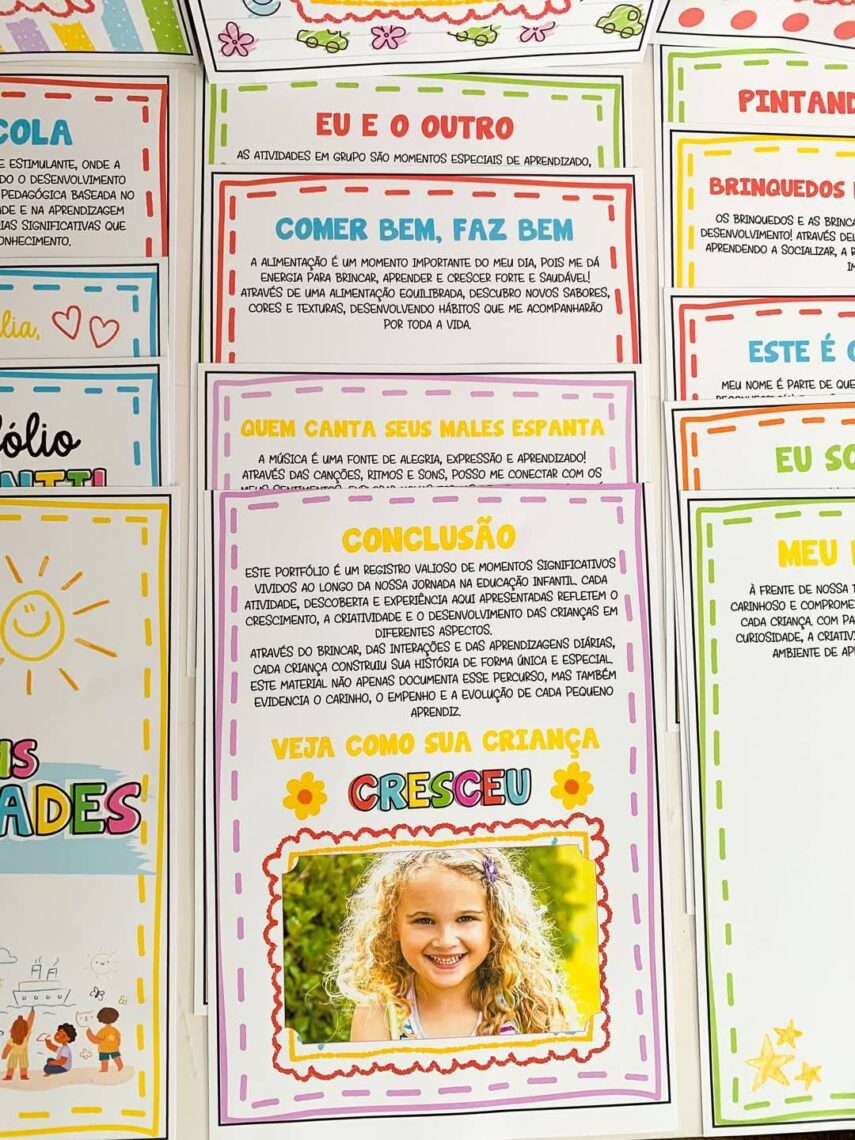 COLA
E ESTIMULANTE, ONDE A
DO O DESENVOLVIMENTO
PEDAGÓGICA BASEADA NO
DADE E NA APRENDIZAGEM
RIAS SIGNIFICATIVAS QUE
ONHECIMENTO.
lia,
fólio
MS
ADES
EU E O OUTRO
AS ATIVIDADES EM GRUPO SÃO MOMENTOS ESPECIAIS DE APRENDIZADO,
COMER BEM, FAZ BEM
A ALIMENTAÇÃO É UM MOMENTO IMPORTANTE DO MEU DIA, POIS ME DÁ
ENERGIA PARA BRINCAR, APRENDER E CRESCER FORTE E SAUDÁVEL!
ATRAVÉS DE UMA ALIMENTAÇÃO EQUILIBRADA, DESCUBRO NOVOS SABORES,
CORES E TEXTURAS, DESENVOLVENDO HÁBITOS QUE ME ACOMPANHARÃO
POR TODA A VIDA.
QUEM CANTA SEUS MALES ESPANTA
A MÚSICA É UMA FONTE DE ALEGRIA, EXPRESSÃO E APRENDIZADO!
ATRAVÉS DAS CANÇÕES, RITMOS E SONS, POSSO ME CONECTAR COM OS
CONCLUSÃO
ESTE PORTFÓLIO É UM REGISTRO VALIOSO DE MOMENTOS SIGNIFICATIVOS
VIVIDOS AO LONGO DA NOSSA JORNADA NA EDUCAÇÃO INFANTIL. CADA
ATIVIDADE, DESCOBERTA E EXPERIÊNCIA AQUI APRESENTADAS REFLETEM O
CRESCIMENTO, A CRIATIVIDADE E O DESENVOLVIMENTO DAS CRIANÇAS EM
DIFERENTES ASPECTOS.
ATRAVÉS DO BRINCAR, DAS INTERAÇÕES E DAS APRENDIZAGENS DIÁRIAS,
CADA CRIANÇA CONSTRUIU SUA HISTÓRIA DE FORMA ÚNICA E ESPECIAL.
ESTE MATERIAL NÃO APENAS DOCUMENTA ESSE PERCURSO, MAS TAMBÉM
EVIDENCIA O CARINHO, O EMPENHO E A EVOLUÇÃO DE CADA PEQUENO
APRENDIZ.
VEJA COMO SUA CRIANÇA
CRESCEU
PINTAND
BRINQUEDOS
OS BRINQUEDOS E AS BRINCA
DESENVOLVIMENTO! ATRAVÉS DEL
APRENDENDO A SOCIALIZAR, A R
IM
ESTE É O
MEU NOME É PARTE DE QUE
EU SO
MEU
À FRENTE DE NOSSA T
CARINHOSO E COMPROME
CADA CRIANÇA. COM PA
CURIOSIDADE, A CRIATIV
AMBIENTE DE AP